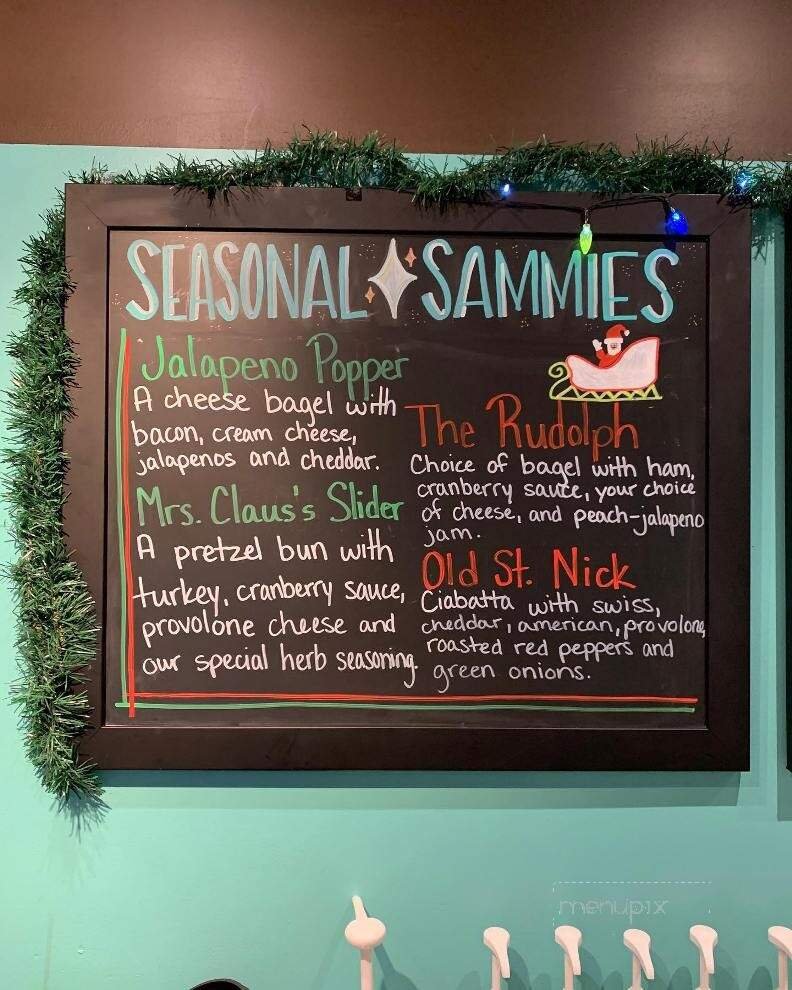 SEASONAL SAMMIES
Jalapeno Popper
A cheese bagel with
bacon, cream cheese,
jalapenos and cheddar.
Mrs. Claus's Slider
A pretzel bun with
turkey, cranberry sauce,
provolone cheese and
our special herb seasoning.
The Rudolph
Choice of bagel with ham,
cranberry sauce, your choice
of cheese, and peach-jalapeno
jam.
Old St. Nick
Ciabatta with swiss,
cheddar, american, provolone,
roasted red peppers and
green onions.
menupix